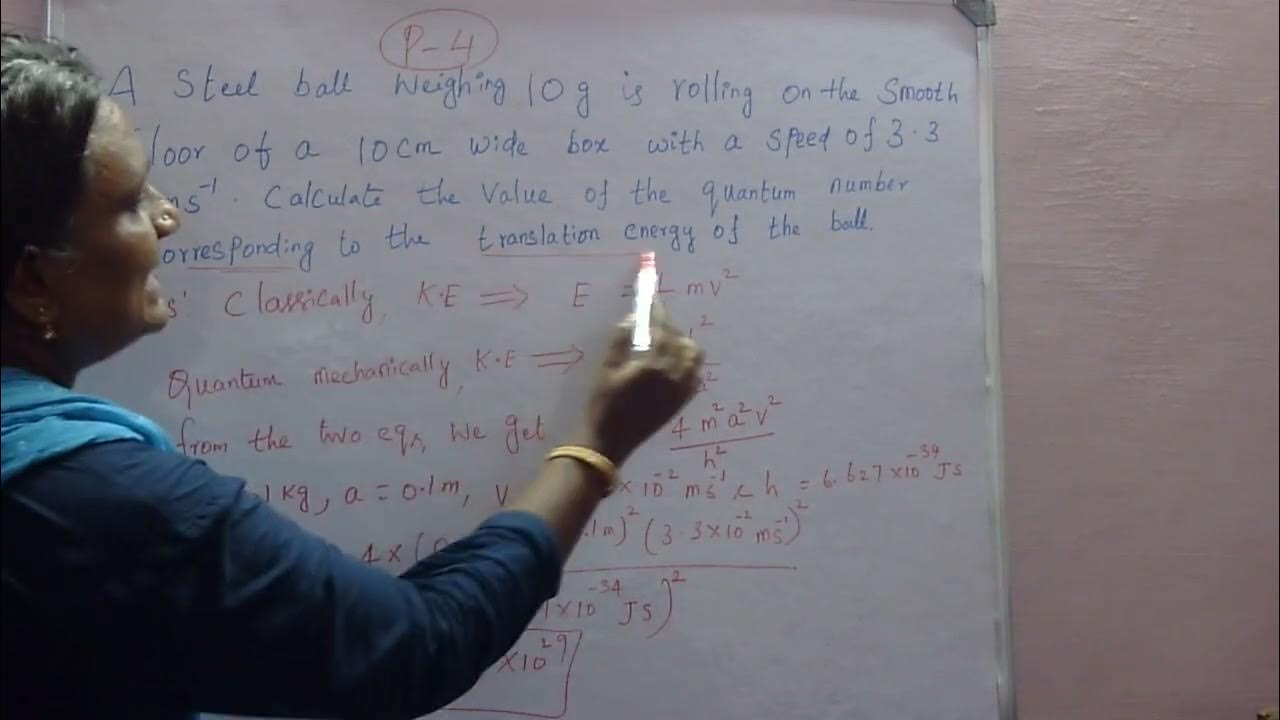 P-4
A Steel ball Weighing 10 g is rolling on the Smooth
loor of a 10 cm wide box with a speed of 3.3
ms⁻¹. Calculate the Value of the quantum number
orresponding to the translation energy of the ball.
s' Classically, K.E ⇒ E = mv²
Quantum mechanically, K.E ⇒ ²
from the two eqs, we get 4 m²a²v² / h²
1 kg, a = 0.1m, v ×10⁻² ms⁻¹ & h = 6.627×10⁻³⁴ Js
4×(0 .1m)² (3.3×10⁻² ms⁻¹)²
×10⁻³⁴ Js)²
×10²⁹